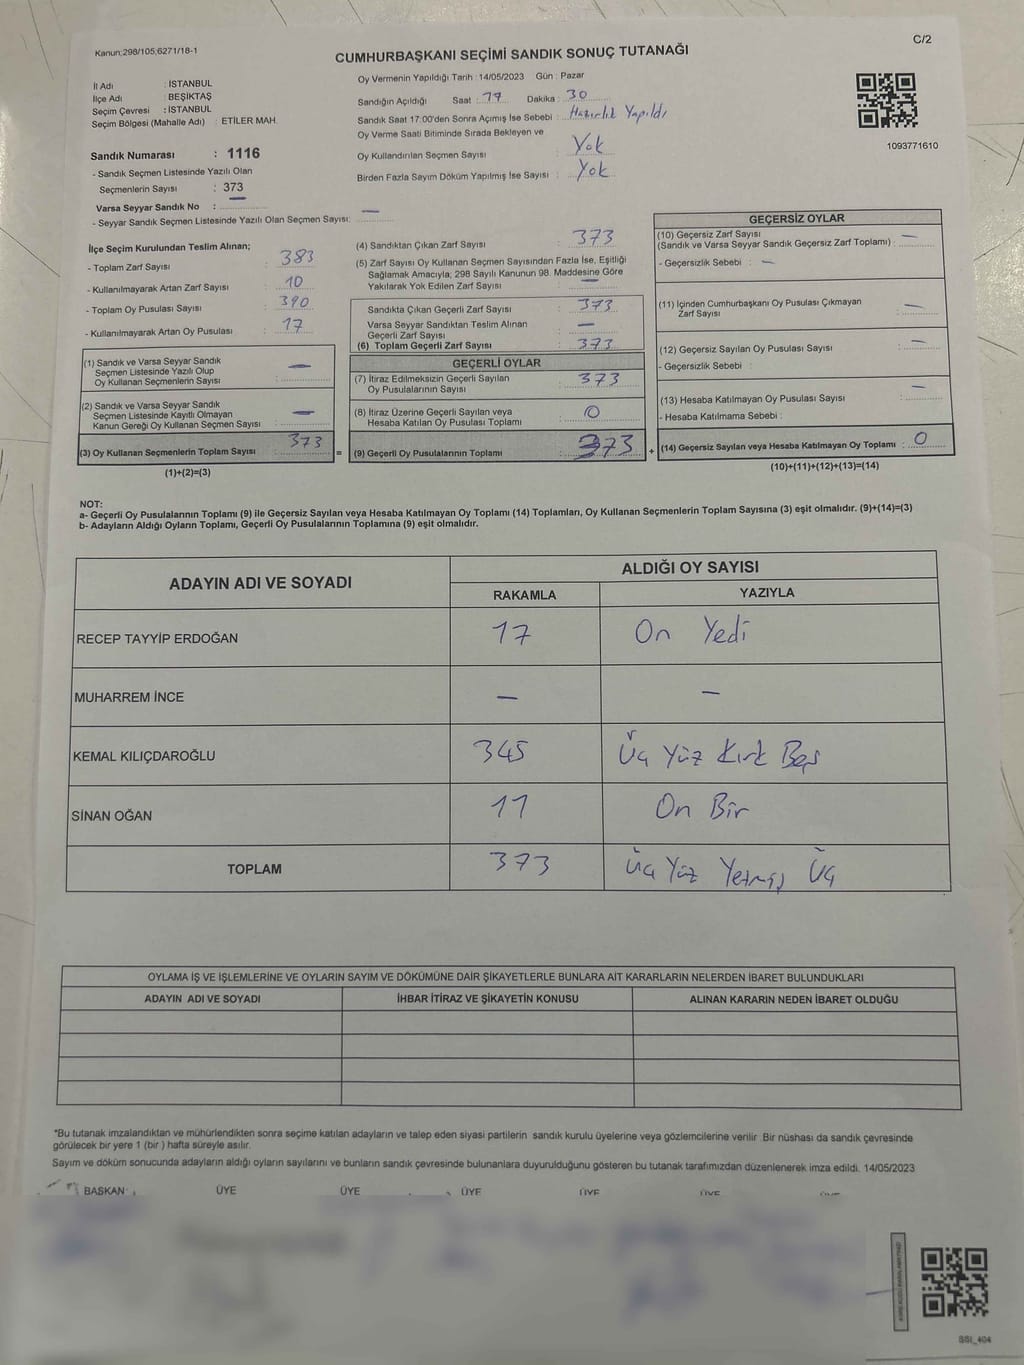 Kanun;298/105,6271/18-1
C/2
CUMHURBAŞKANI SEÇİMİ SANDIK SONUÇ TUTANAĞI
İl Adı : İSTANBUL
İlçe Adı : BEŞİKTAŞ
Seçim Çevresi : İSTANBUL
Seçim Bölgesi (Mahalle Adı) : ETİLER MAH.
Oy Vermenin Yapıldığı Tarih : 14/05/2023 Gün : Pazar
Sandığın Açıldığı Saat : 17 Dakika : 30
Sandık Saat 17:00'den Sonra Açımış İse Sebebi : Hazırlık Yapıldı
Oy Verme Saati Bitiminde Sırada Bekleyen ve
Oy Kullandırılan Seçmen Sayısı : Yok
Birden Fazla Sayım Döküm Yapılmış İse Sayısı : Yok
1093771610
Sandık Numarası : 1116
- Sandık Seçmen Listesinde Yazılı Olan
Seçmenlerin Sayısı : 373
Varsa Seyyar Sandık No : —
- Seyyar Sandık Seçmen Listesinde Yazılı Olan Seçmen Sayısı: —
İlçe Seçim Kurulundan Teslim Alınan;
- Toplam Zarf Sayısı : 383
- Kullanılmayarak Artan Zarf Sayısı : 10
- Toplam Oy Pusulası Sayısı : 390
- Kullanılmayarak Artan Oy Pusulası : 17
(1) Sandık ve Varsa Seyyar Sandık
Seçmen Listesinde Yazılı Olup
Oy Kullanan Seçmenlerin Sayısı : —
(2) Sandık ve Varsa Seyyar Sandık
Seçmen Listesinde Kayıtlı Olmayan
Kanun Gereği Oy Kullanan Seçmen Sayısı : —
(3) Oy Kullanan Seçmenlerin Toplam Sayısı : 373
(1)+(2)=(3)
=
(4) Sandıktan Çıkan Zarf Sayısı : 373
(5) Zarf Sayısı Oy Kullanan Seçmen Sayısından Fazla İse, Eşitliği
Sağlamak Amacıyla; 298 Sayılı Kanunun 98. Maddesine Göre
Yakılarak Yok Edilen Zarf Sayısı : —
Sandıkta Çıkan Geçerli Zarf Sayısı : 373
Varsa Seyyar Sandıktan Teslim Alınan
Geçerli Zarf Sayısı : —
(6) Toplam Geçerli Zarf Sayısı : 373
GEÇERLİ OYLAR
(7) İtiraz Edilmeksizin Geçerli Sayılan
Oy Pusulalarının Sayısı : 373
(8) İtiraz Üzerine Geçerli Sayılan veya
Hesaba Katılan Oy Pusulası Toplamı : 0
(9) Geçerli Oy Pusulalarının Toplamı : 373
+
GEÇERSİZ OYLAR
(10) Geçersiz Zarf Sayısı
(Sandık ve Varsa Seyyar Sandık Geçersiz Zarf Toplamı) : —
- Geçersizlik Sebebi : —
(11) İçinden Cumhurbaşkanı Oy Pusulası Çıkmayan
Zarf Sayısı : —
(12) Geçersiz Sayılan Oy Pusulası Sayısı : —
- Geçersizlik Sebebi :
(13) Hesaba Katılmayan Oy Pusulası Sayısı : —
- Hesaba Katılmama Sebebi :
(14) Geçersiz Sayılan veya Hesaba Katılmayan Oy Toplamı : 0
(10)+(11)+(12)+(13)=(14)
NOT:
a- Geçerli Oy Pusulalarının Toplamı (9) ile Geçersiz Sayılan veya Hesaba Katılmayan Oy Toplamı (14) Toplamları, Oy Kullanan Seçmenlerin Toplam Sayısına (3) eşit olmalıdır. (9)+(14)=(3)
b- Adayların Aldığı Oyların Toplamı, Geçerli Oy Pusulalarının Toplamına (9) eşit olmalıdır.
ADAYIN ADI VE SOYADI
ALDIĞI OY SAYISI
RAKAMLA YAZIYLA
RECEP TAYYİP ERDOĞAN 17 On Yedi
MUHARREM İNCE — —
KEMAL KILIÇDAROĞLU 345 Üç Yüz Kırk Beş
SİNAN OĞAN 11 On Bir
TOPLAM 373 Üç Yüz Yetmiş Üç
OYLAMA İŞ VE İŞLEMLERİNE VE OYLARIN SAYIM VE DÖKÜMÜNE DAİR ŞİKAYETLERLE BUNLARA AİT KARARLARIN NELERDEN İBARET BULUNDUKLARI
ADAYIN ADI VE SOYADI İHBAR İTİRAZ VE ŞİKAYETİN KONUSU ALINAN KARARIN NEDEN İBARET OLDUĞU
*Bu tutanak imzalandıktan ve mühürlendikten sonra seçime katılan adayların ve talep eden siyasi partilerin sandık kurulu üyelerine veya gözlemcilerine verilir. Bir nüshası da sandık çevresinde
görülecek bir yere 1 (bir ) hafta süreyle asılır.
Sayım ve döküm sonucunda adayların aldığı oyların sayılarını ve bunların sandık çevresinde bulunanlara duyurulduğunu gösteren bu tutanak tarafımızdan düzenlenerek imza edildi. 14/05/2023
BAŞKAN ÜYE ÜYE ÜYE ÜYE ÜYE
SSI_404